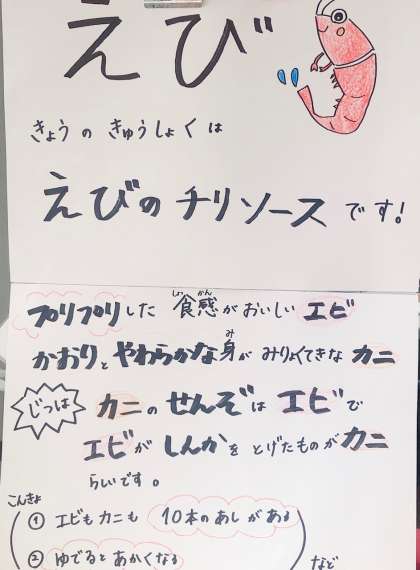 えび
きょうのきゅうしょくは
えびのチリソースです!
プリプリした食感がおいしいエビ
しょっかん
かおりとやわらかな身がみりょくてきなカニ
み
じつは
カニのせんぞはエビで
エビがしんかをとげたものがカニ
らしいです。
こんきょ
① エビもカニも10本のあしがある
② ゆでるとあかくなる
など